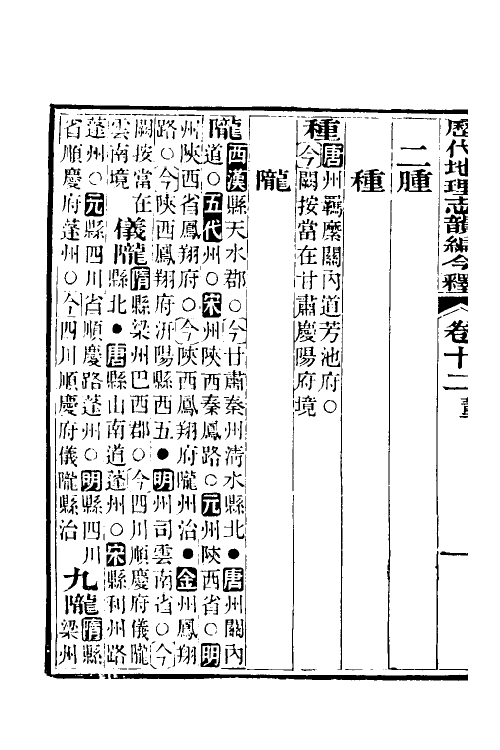 歷代地理志韻編今釋 卷十二
二腫
種
種
唐州羈縻關內道芳池府○
今闕按當在甘肅慶陽府境
隴
隴
西漢縣天水郡○今甘肅秦州清水縣北●唐州關內
道○五代州○宋州陝西秦鳳路○元州陝西省○明
州陝西省鳳翔府○今陝西鳳翔府隴州治●金州鳳翔
路○今陝西鳳翔府汧陽縣西五●明州司雲南省○今
闕按當在
雲南境
儀隴
隋縣梁州巴西郡○今四川順慶府儀隴
縣北●唐縣山南道蓬州○宋縣利州路
蓬州○元縣四川省順慶路蓬州○明縣四川
省順慶府蓬州○今四川順慶府儀隴縣治
九隴
隋縣
梁州